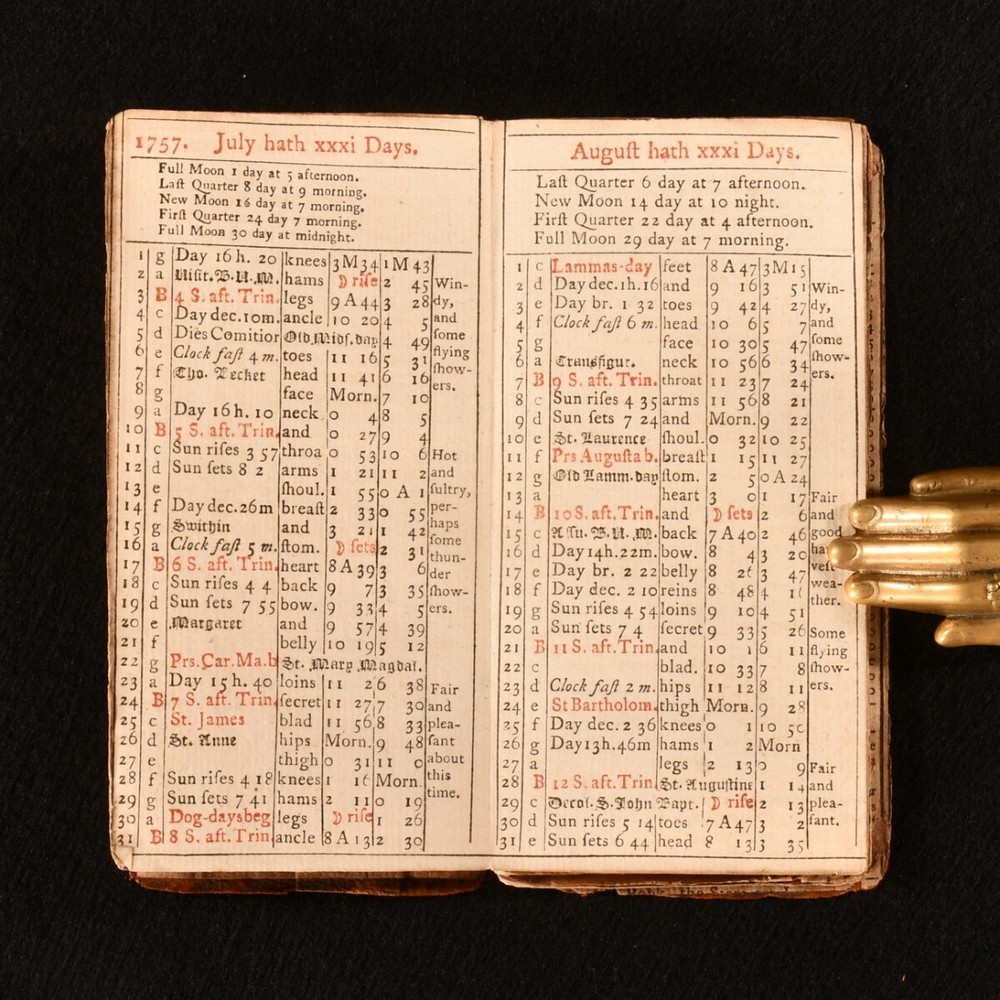 1757. July hath xxxi Days.
Full Moon 1 day at 5 afternoon.
Laſt Quarter 8 day at 9 morning.
New Moon 16 day at 7 morning.
Firſt Quarter 24 day 7 morning.
Full Moon 30 day at midnight.
1 g Day 16 h. 20 knees 3 M 34 1 M 43
2 a Viſit. B. V. M. hams ☽ riſe 2 45 Win-
3 B 4 S. aft. Trin. legs 9 A 44 3 28 dy,
4 c Day dec. 10m. ancle 10 20 4 5 and
5 d Dies Comitior Old Midſ. day 4 49 ſome
6 e Clock faſt 4 m. toes 11 16 5 31 flying
7 f Tho. Becket head 11 41 6 16 ſhow-
8 g face Morn. 7 10 ers.
9 a Day 16 h. 10 neck 0 4 8 5
10 B 5 S. aft. Trin. and 0 27 9 4
11 c Sun riſes 3 57 throa 0 53 10 6 Hot
12 d Sun ſets 8 2 arms 1 21 11 2 and
13 e ſhoul. 1 55 0 A 1 ſultry,
14 f Day dec. 26m breaſt 2 33 0 55 per-
15 g Swithin and 3 21 1 42 haps
16 a Clock faſt 5 m. ſtom. ☽ ſets 2 31 ſome
17 B 6 S. aft. Trin. heart 8 A 39 3 6 thun-
18 c Sun riſes 4 4 back 9 7 3 35 der
19 d Sun ſets 7 55 bow. 9 33 4 5 ſhow-
20 e Margaret and 9 57 4 39 ers.
21 f belly 10 19 5 12
22 g Prs. Car. Ma. b St. Mary Magdal.
23 a Day 15 h. 40 loins 11 2 6 38 Fair
24 B 7 S. aft. Trin. ſecret 11 27 7 30 and
25 c St. James blad 11 56 8 33 plea-
26 d St. Anne hips Morn. 9 48 ſant
27 e thigh 0 31 11 0 about
28 f Sun riſes 4 18 knees 1 16 Morn. this
29 g Sun ſets 7 41 hams 2 11 0 19 time.
30 a Dog-days beg legs ☽ riſe 1 26
31 B 8 S. aft. Trin. ancle 8 A 13 2 30
Auguſt hath xxxi Days.
Laſt Quarter 6 day at 7 afternoon.
New Moon 14 day at 10 night.
Firſt Quarter 22 day at 4 afternoon.
Full Moon 29 day at 7 morning.
1 c Lammas-day feet 8 A 47 3 M 15
2 d Day dec. 1h. 16 and 9 16 3 51 Win-
3 e Day br. 1 32 toes 9 42 4 27 dy,
4 f Clock faſt 6 m. head 10 6 5 7 and
5 g face 10 30 5 47 ſome
6 a Transfigur. neck 10 56 6 34 ſhow-
7 B 9 S. aft. Trin. throat 11 23 7 24 ers.
8 c Sun riſes 4 35 arms 11 56 8 21
9 d Sun ſets 7 24 and Morn. 9 22
10 e St. Laurence ſhoul. 0 32 10 25
11 f Prs Auguſta b. breaſt 1 15 11 27
12 g Old Lamm. day ſtom. 2 5 0 A 24
13 a heart 3 0 1 17 Fair
14 B 10 S. aft. Trin. and ☽ ſets 2 6 and
15 c Aſſu. B. V. M. back 7 A 40 2 46 good
16 d Day 14h. 22m. bow. 8 4 3 20 har
17 e Day br. 2 22 belly 8 26 3 47 veſt
18 f Day dec. 2 10 reins 8 48 4 wea-
19 g Sun riſes 4 54 loins 9 10 4 51 ther.
20 a Sun ſets 7 4 ſecret 9 33 5 26 Some
21 B 11 S. aft. Trin. and 10 1 6 11 flying
22 c blad. 10 33 7 8 ſhow-
23 d Clock faſt 2 m. hips 11 12 8 11 ers.
24 e St Bartholom. thigh Morn. 9 28
25 f Day dec. 2 36 knees 0 1 10 50
26 g Day 13h. 46m hams 1 2 Morn
27 a legs 2 13 0 9 Fair
28 B 12 S. aft. Trin. St. Auguſtine 1 14 and
29 c Decol. S. John Bapt. ☽ riſe 2 13 plea-
30 d Sun riſes 5 14 toes 7 A 47 3 2 ſant.
31 e Sun ſets 6 44 head 8 13 3 35